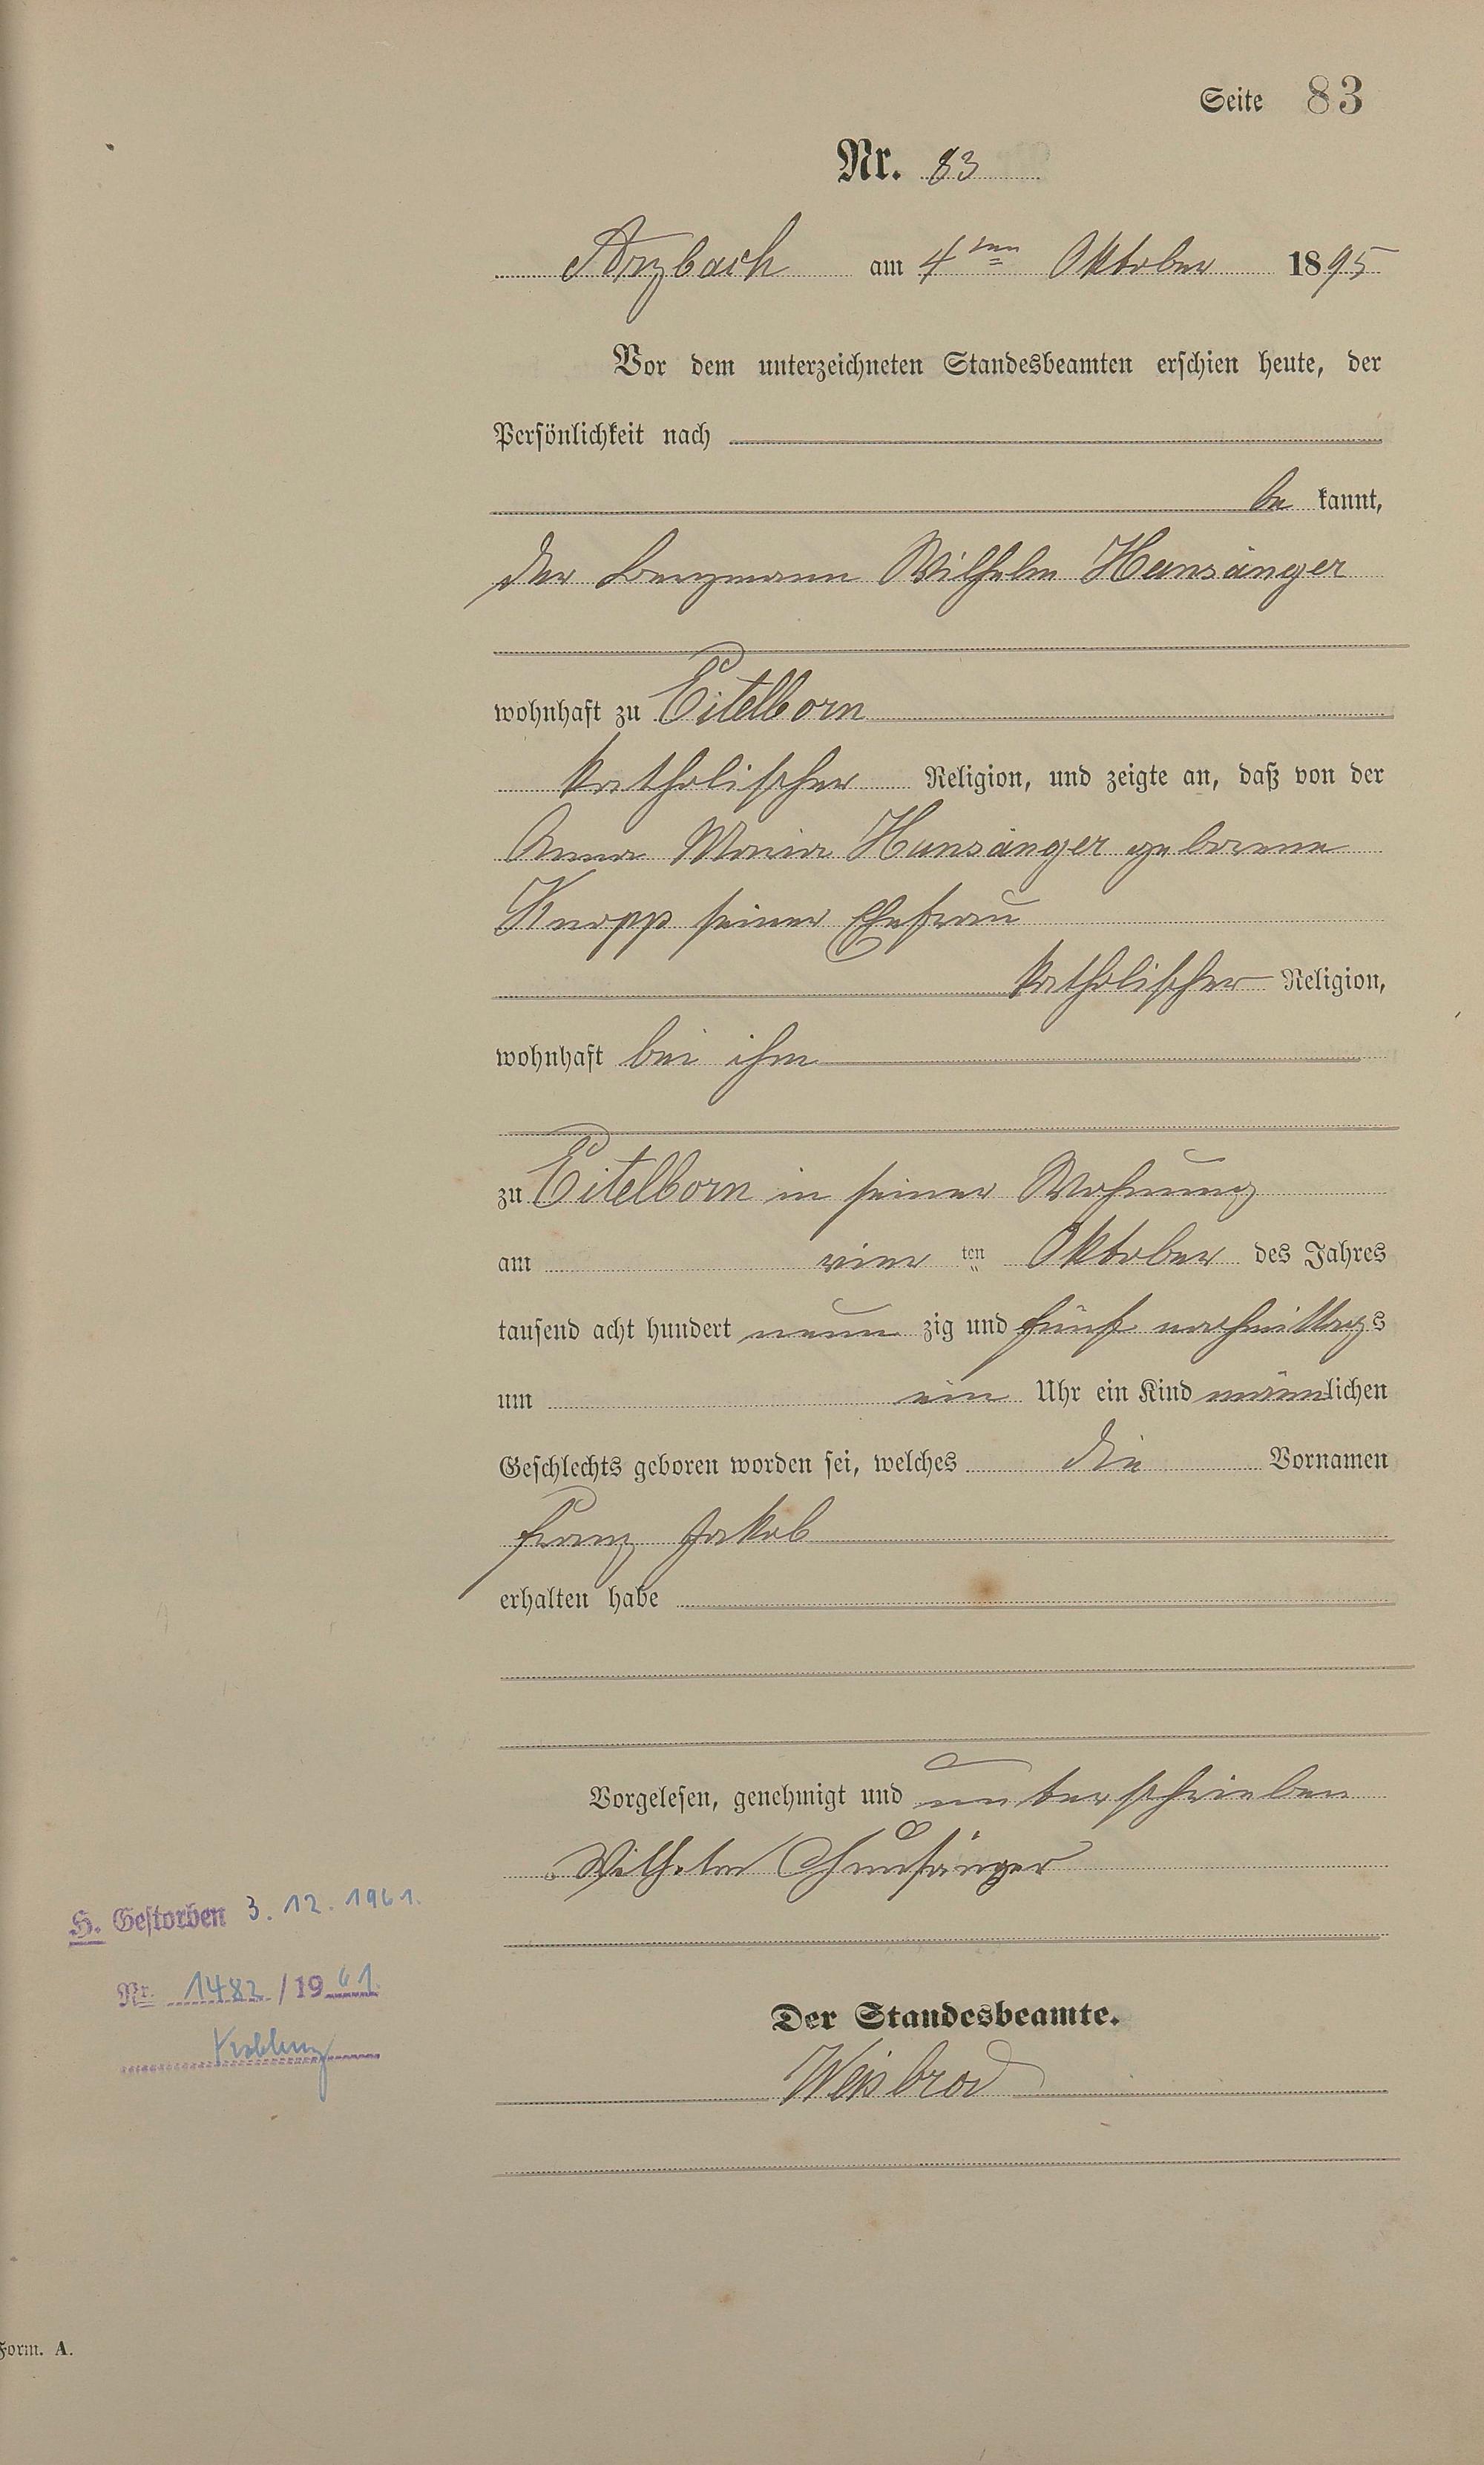 Seite 83
Nr. 83
Arzbach am 4ten Oktober 1895
Vor dem unterzeichneten Standesbeamten erschien heute, der
Persönlichkeit nach
be kannt,
der Bergmann Wilhelm Hunsänger
wohnhaft zu Eitelborn
katholischer Religion, und zeigte an, daß von der
Anna Maria Hunsänger geborene
Knopp seiner Ehefrau
katholischer Religion,
wohnhaft bei ihm
zu Eitelborn in seiner Wohnung
am vier ten Oktober des Jahres
tausend acht hundert neun zig und fünf nachmittags
um ein Uhr ein Kind männlichen
Geschlechts geboren worden sei, welches die Vornamen
Franz Jakob
erhalten habe
Vorgelesen, genehmigt und unterschrieben
Wilhelm Hunsänger
H. Gestorben 3. 12. 1961.
Nr. 1482 / 19 61.
Koblenz
Der Standesbeamte.
Weisbrod
Form. A.